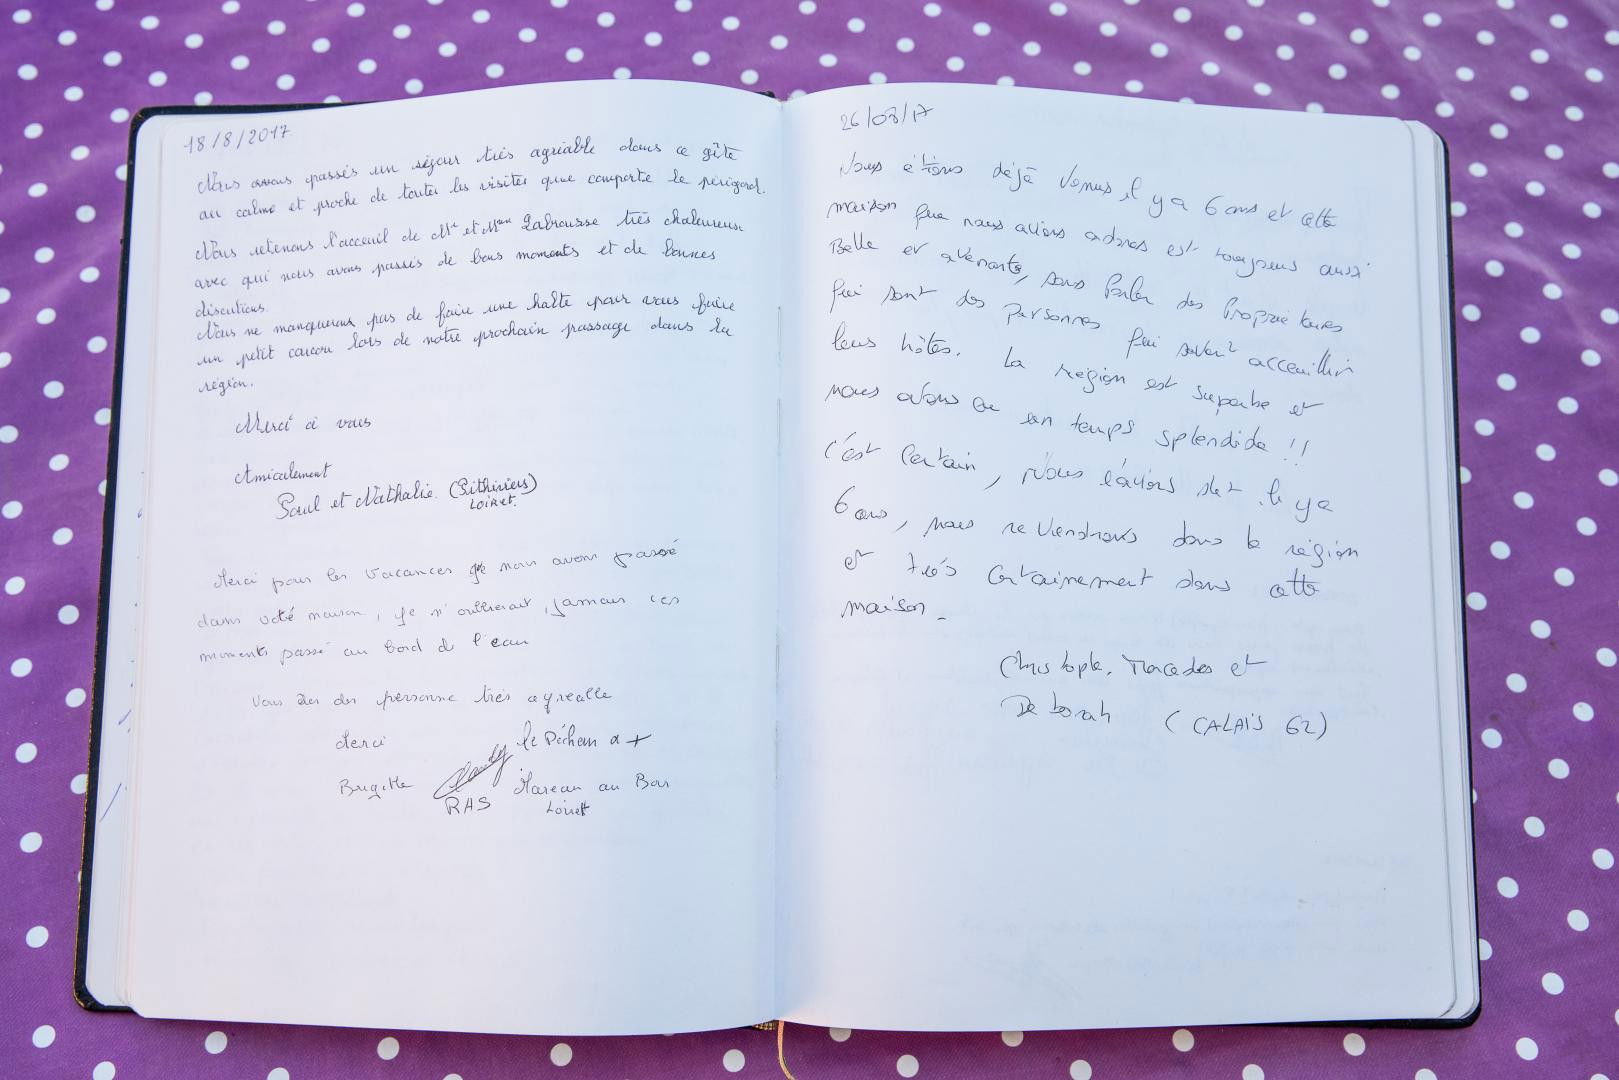 18/8/2017
Nous avons passés un séjour très agréable dans ce gîte
au calme et proche de toutes les visites que comporte le périgord.
Nous retenons l'acceuil de Mr et Mme Labrousse très chaleureux
avec qui nous avons passés de bons moments et de bonnes
discutions.
Nous ne manquerons pas de faire une halte pour vous faire
un petit coucou lors de notre prochain passage dans la
région.
Merci à vous
Amicalement
Paul et Nathalie. (Pithiviers)
LOIRET.
Merci pour les vacances que nous avons passé
dans voté maison, je n'oublierait jamais ces
moments passé au bord de l'eau
Vous êtes des personne très agréable
Merci
le Péchou a +
Brigitte
RAS
Mareau au Bois
Loiret
26/08/17
Nous étions déjà venus il y a 6 ans et cette
maison que nous avions adorés est toujours aussi
Belle et avenante, sans Parler des Propriétaires
qui sont des personnes qui savent acceuillir
leurs hôtes. La région est superbe et
nous avons eu un temps splendide !!
C'est Certain, Nous l'avions dit il y a
6 ans, nous reviendrons dans la région
et très Certainement dans cette
maison.
Christophe, Mercedes et
Deborah (CALAIS 62)